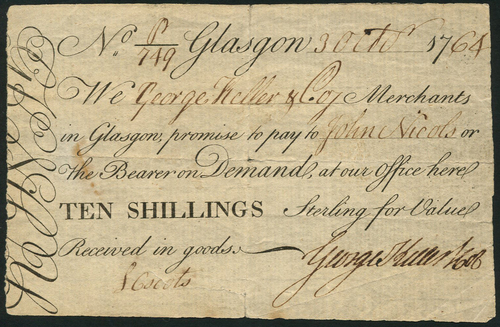 No. P/749 Glasgow 3 Octbr 1764
We George Keller & Coy Merchants
in Glasgow, promise to pay to John Nicols or
The Bearer on Demand, at our Office here
TEN SHILLINGS Sterling for Value
Received in goods.
George Keller & Co
£6 scots